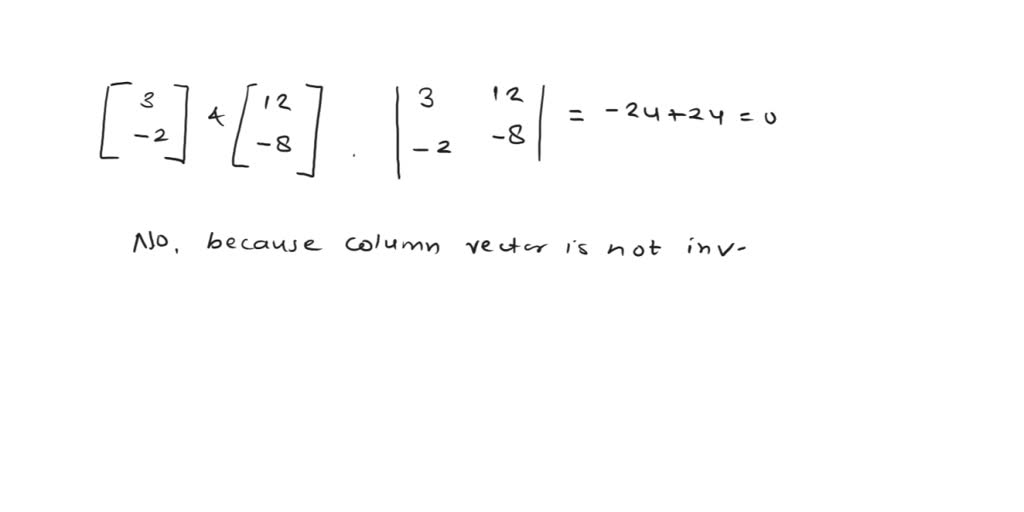 [3 -2] & [12 -8] . |3 12 -2 -8| = -24+24=0
No, because column vector is not inv-